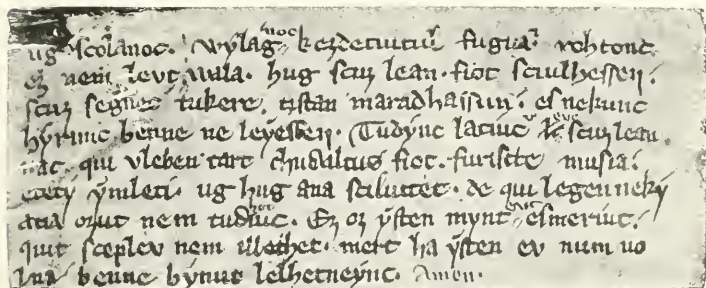 ug scolanoc. wylagnoc kezdetuitul fugua rohtonc
ez nem levt wala. hug scuz lean. fiot sciulhessen.
scuz segnec tukere. tistan maradhassun. es nekunc
hyrunc benne ne leyessen. Tudyuc latiuc evt scuz lean
nac qui vleben tart chudaltus fiot. furiscte musia.
etety ymleti. ug hug ana sciluttet. de qui legen neky
atia ozut nem tudhotiuc. Ez oz ysten mynt evt esmeriuc.
quit sceplev nem illethet. mert ha ysten ev num uo
lna benne bynut lelhetneync. Amen.